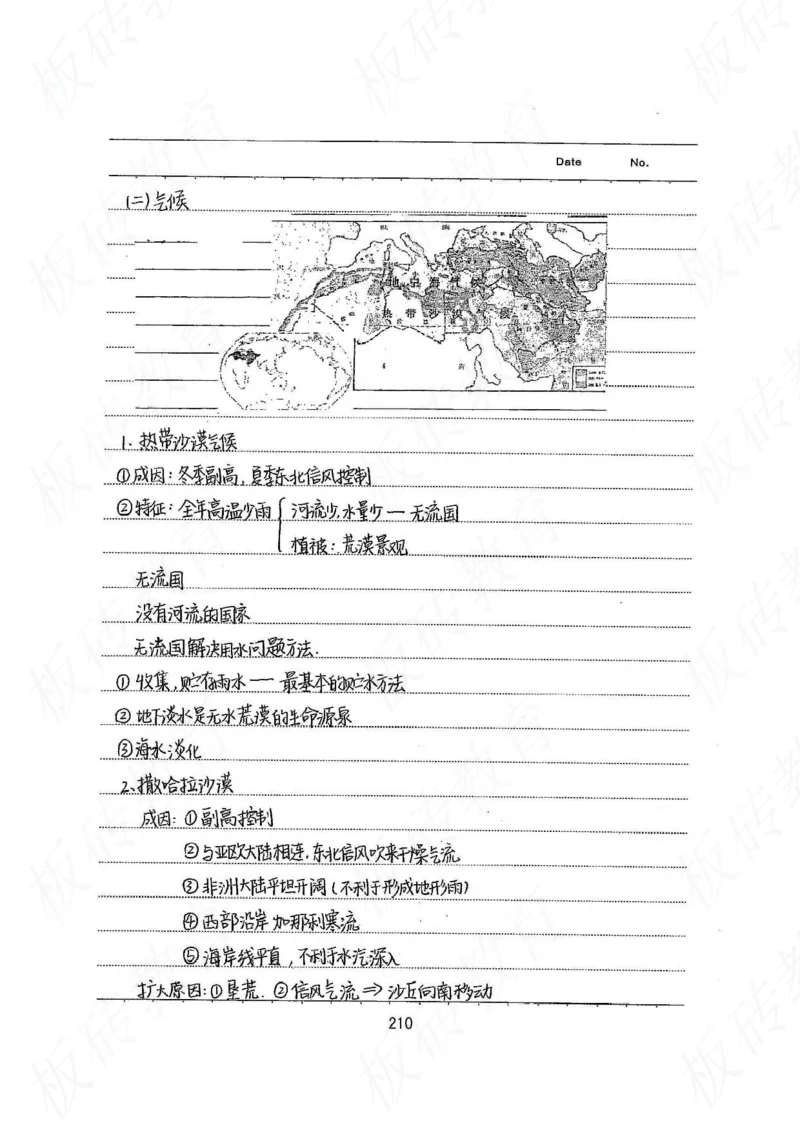 Date No.
(二)气候
地中海气候
热带沙漠气候
1. 热带沙漠气候
①成因:冬季副高,夏季东北信风控制
②特征:全年高温少雨{河流少,水量少—无流国
植被:荒漠景观
无流国
没有河流的国家
无流国解决用水问题方法.
①收集,贮存雨水——最基本的贮水方法
②地下淡水是无水荒漠的生命源泉
③海水淡化
2.撒哈拉沙漠
成因:①副高控制
②与亚欧大陆相连,东北信风吹来干燥气流
③非洲大陆平坦开阔(不利于形成地形雨)
④西部沿岸加那利寒流
⑤海岸线平直,不利于水汽深入
扩大原因:①垦荒.②信风气流⇒沙丘向南移动
210
板砖教育